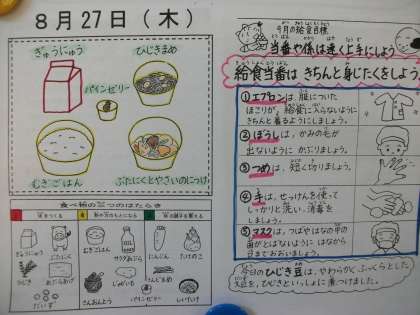 8月27日(木)
ぎゅうにゅう
ひじきまめ
パインゼリー
むぎごはん
ぶたにくとやさいのにつけ
食べ物の三つのはたらき
ぎゅうにゅう
ぶたにく
むぎごはん
サラダあぶら
にんじん
たけのこ
ひじき
あぶらあげ
さとう
じゃがいも
さんどまめ
だいず
さんおんとう
パインゼリー
しいたけ
9月の給食目標
当番や係は速く上手にしよう
給食当番は きちんと身じたくをしよう。
①エプロンは、服についた
ほこりが、給食に入らないように
きちんと着るようにしましょう。
②ぼうしは、かみの毛が
出ないように かぶりましょう。
③つめは、短く切りましょう。
④手は、せっけんを使って
しっかりと洗い、消毒を
しましょう。
⑤マスクは、つばやはなの中の
菌がとばないように はなから
口までおおいましょう。
今日のひじき豆は、やわらかくふっくらとした
大豆を、ひじきといっしょに煮つけました。